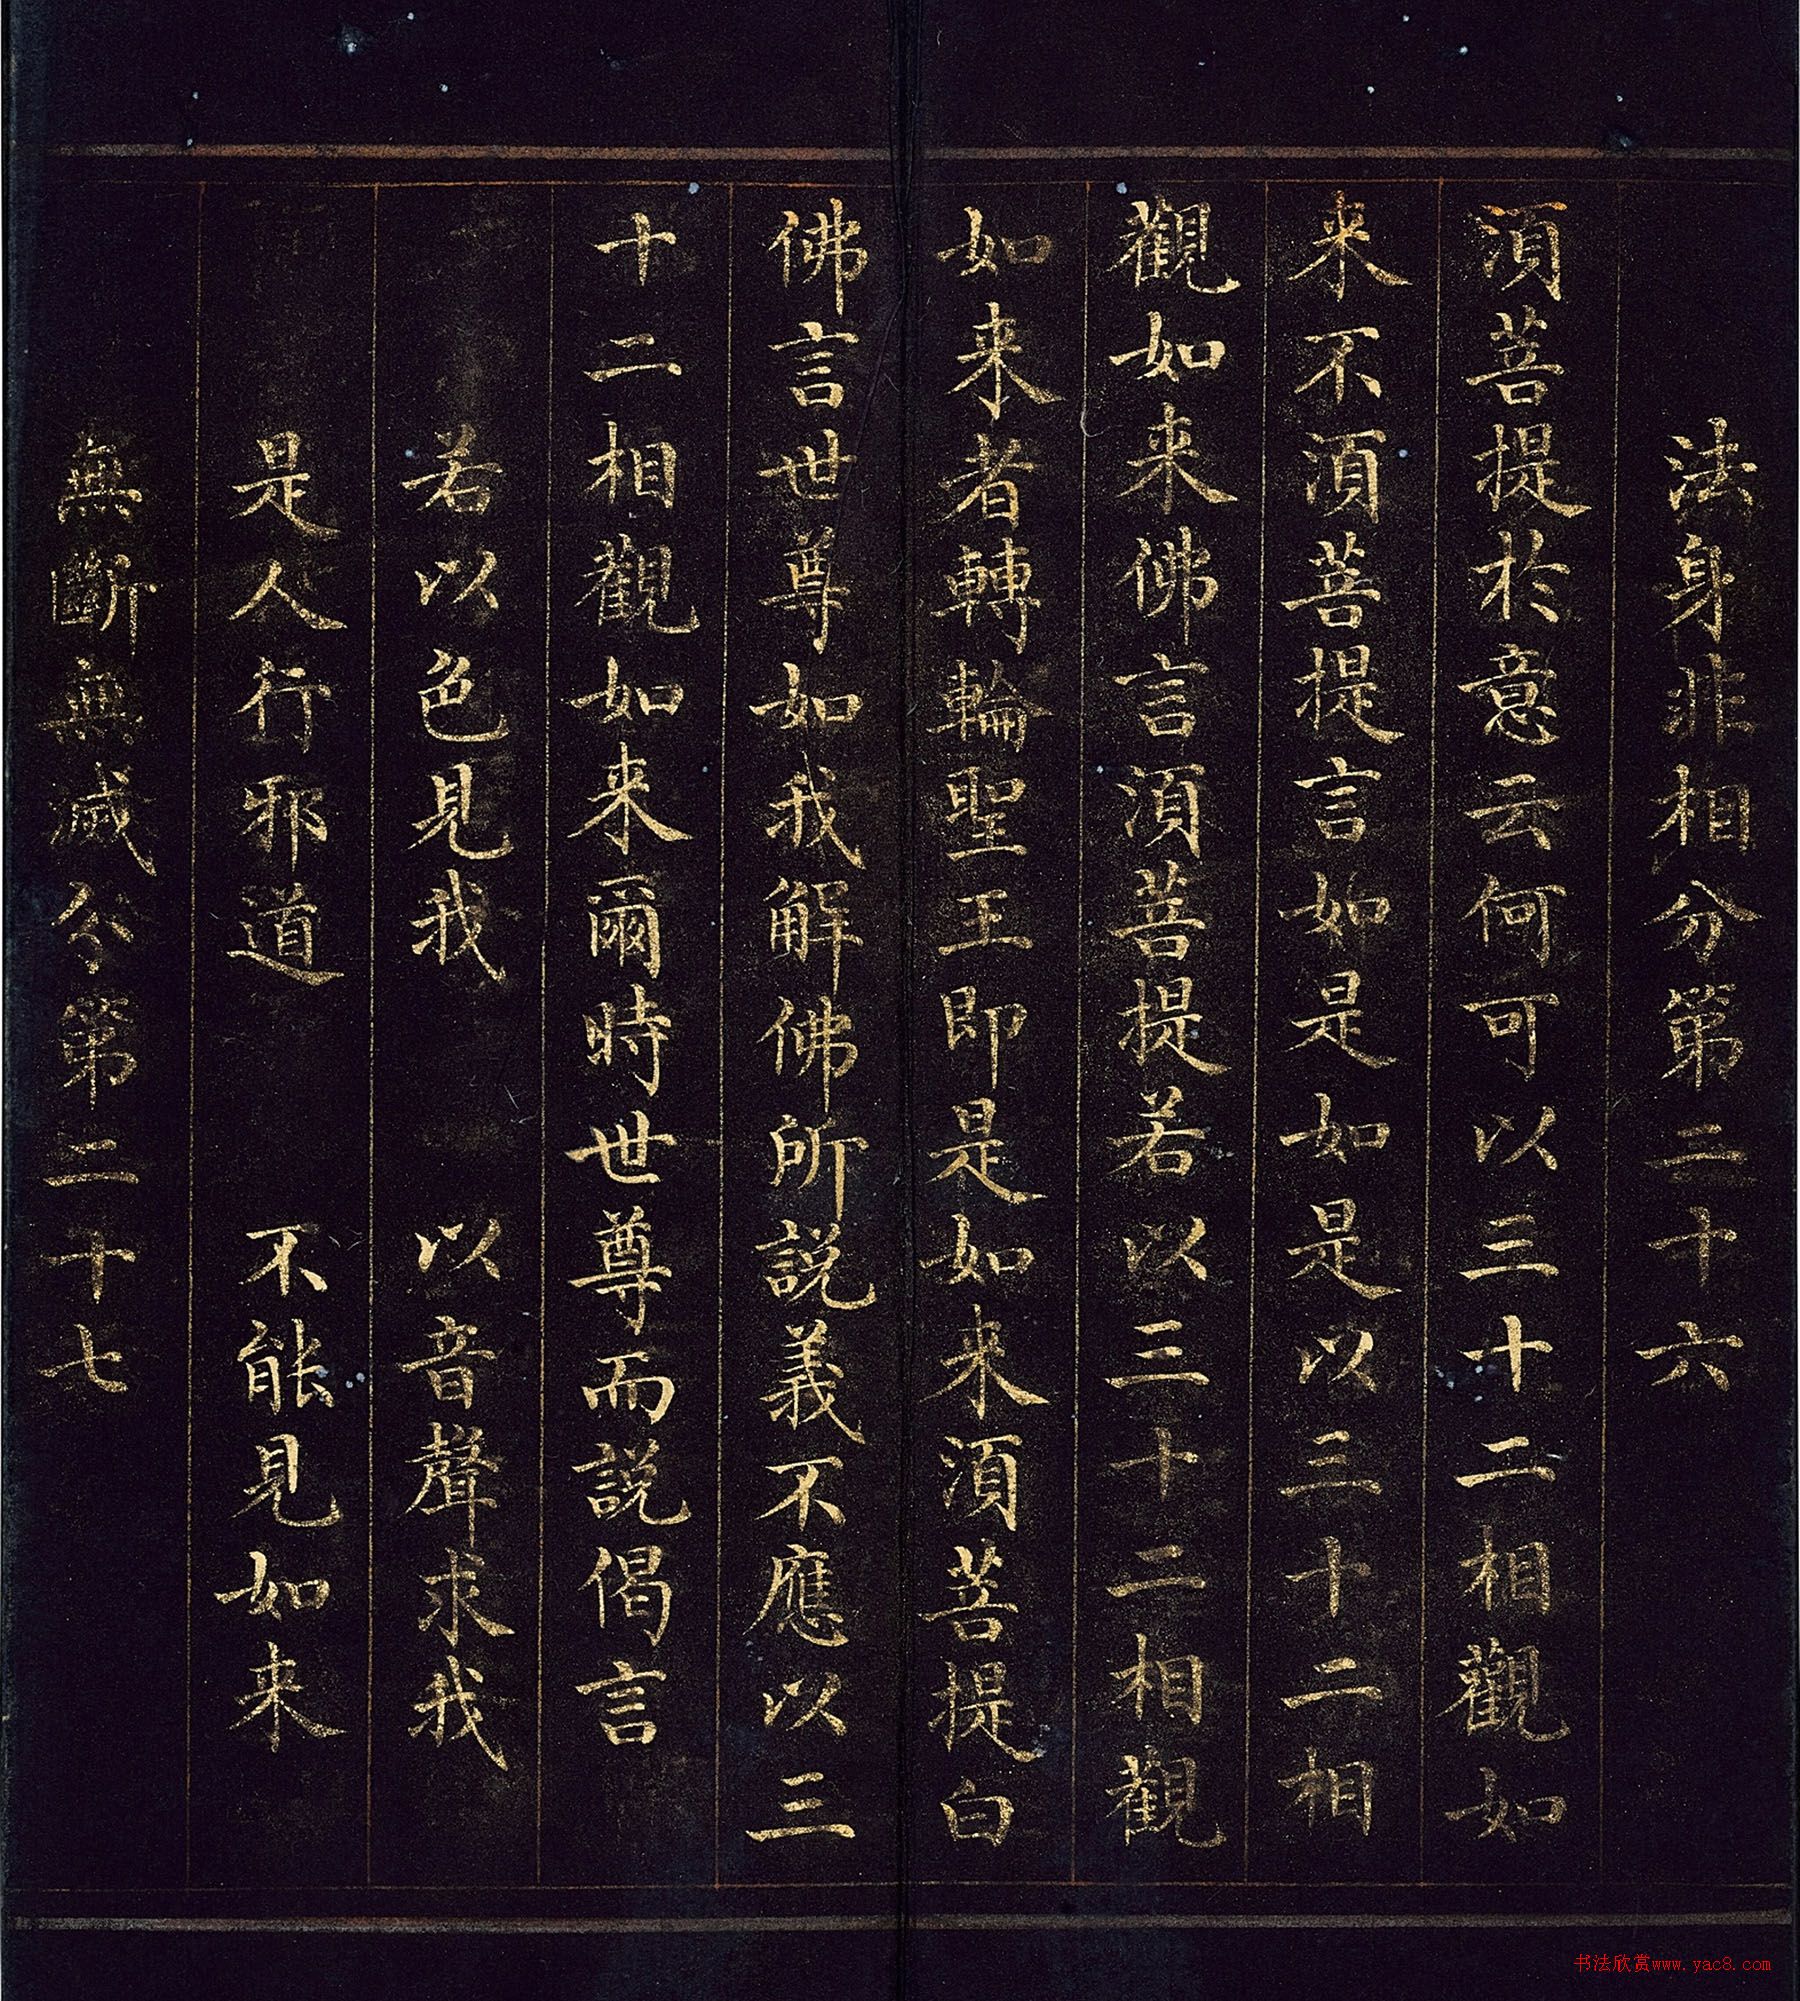 法身非相分第二十六
須菩提於意云何可以三十二相觀如
来不須菩提言如是如是以三十二相
觀如来佛言須菩提若以三十二相觀
如来者轉輪聖王即是如来須菩提白
佛言世尊如我解佛所説義不應以三
十二相觀如来爾時世尊而説偈言
若以色見我 以音聲求我
是人行邪道 不能見如来
無斷無滅分第二十七
书法欣赏www.yac8.com